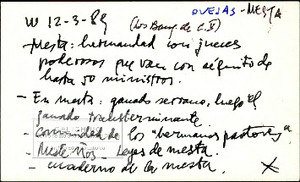 OVEJAS - MESTA
W 12-3-89 (Los Banq. de C. V)
- Mesta: hermandad con jueces
poderosos que van con séquito de
hasta 50 ministros.
- En mesta: ganado serrano, luego el
ganado transterminante.
- Comunidad de los "hermanos pastores"
Mesteños - Leyes de mesta.
- cuaderno de la mesta.